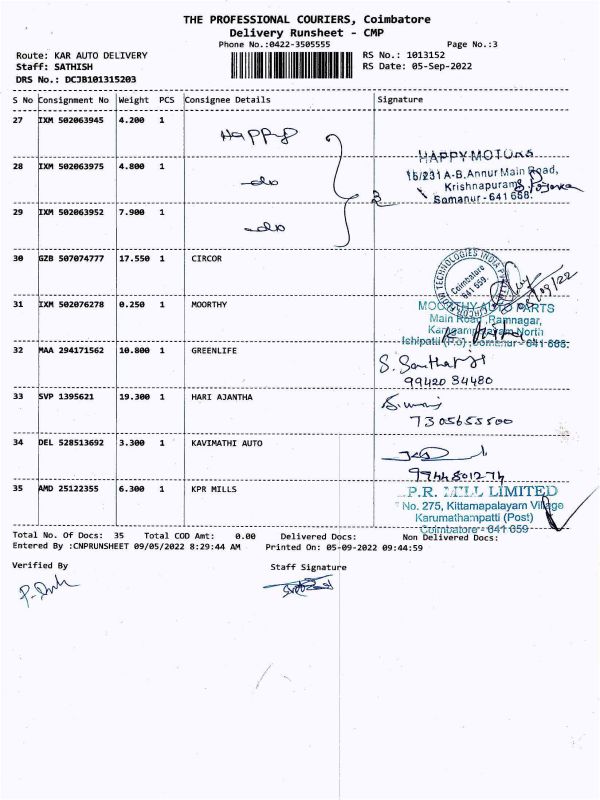 THE PROFESSIONAL COURIERS, Coimbatore
Delivery Runsheet - CMP
Phone No.:0422-3505555 Page No.:3
Route: KAR AUTO DELIVERY RS No.: 1013152
Staff: SATHISH RS Date: 05-Sep-2022
DRS No.: DCJB101315203
S No Consignment No Weight PCS Consignee Details Signature
27 IXM 502063945 4.200 1 Happy
HAPPY MOTORS
28 IXM 502063975 4.800 1 -do 3 15/231 A-B, Annur Main Road,
Krishnapuram,
Somanur - 641 668.
29 IXM 502063952 7.900 1 -do
30 GZB 507074777 17.550 1 CIRCOR
TECHNOLOGIES INDIA
Coimbatore
641 659.
31 IXM 502076278 0.250 1 MOORTHY MOORTHY AUTO PARTS
Main Road, Ramnagar,
North
Ichipatti (P.O), Somanur - 641 668.
32 MAA 294171562 10.800 1 GREENLIFE
99420 34480
33 SVP 1395621 19.300 1 HARI AJANTHA
7305655500
34 DEL 528513692 3.300 1 KAVIMATHI AUTO
9944801274
35 AMD 25122355 6.300 1 KPR MILLS P.R. MILL LIMITED
No. 275, Kittamapalayam Village
Karumathampatti (Post)
Coimbatore - 641 659
Total No. Of Docs: 35 Total COD Amt: 0.00 Delivered Docs: Non Delivered Docs:
Entered By :CNPRUNSHEET 09/05/2022 8:29:44 AM Printed On: 05-09-2022 09:44:59
Verified By Staff Signature